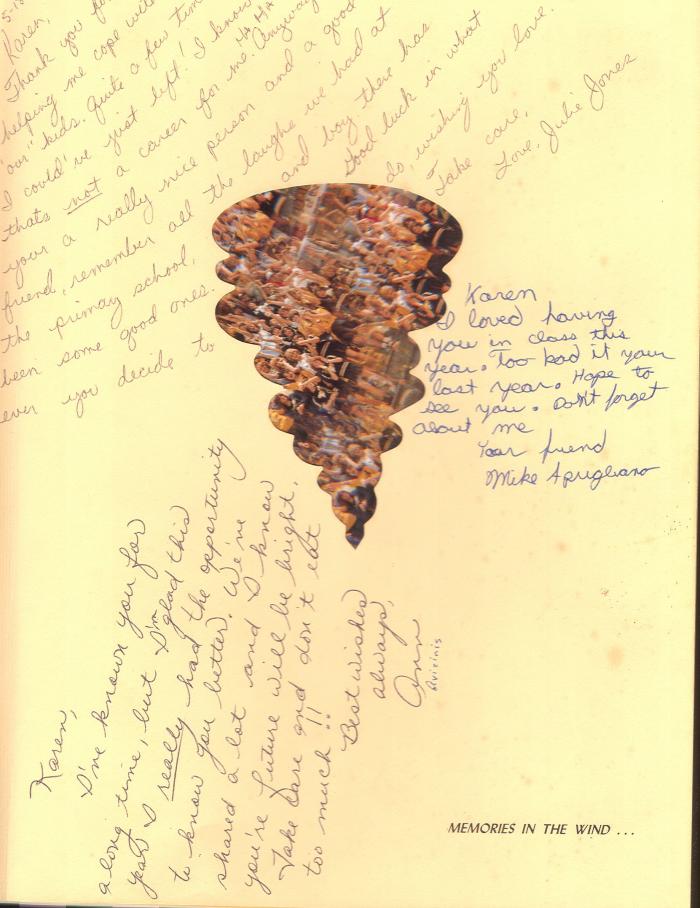 5-15
Karen,
Thank you for
helping me cope with
"our" kids. Quite a few times
I could've just left! I know
thats not a career for me. HA HA Anyway
your a really nice person and a good
friend, remember all the laughs we had at
the primary school, and boy there has
been some good ones. Good luck in what
ever you decide to do, wishing you love.
Take care,
Love, Julie Jones
Karen
I loved having
you in class this
year. Too bad it your
last year. Hope to
see you. Don't forget
about me
Your friend
Mike Aprigliano
Karen,
I've known you for
along time, but I'm glad this
year I really had the opportunity
to know you better. We've
shared a lot and I know
you're future will be bright.
Take care and don't eat
too much!!
Best wishes
always,
Ann
MEMORIES IN THE WIND ...